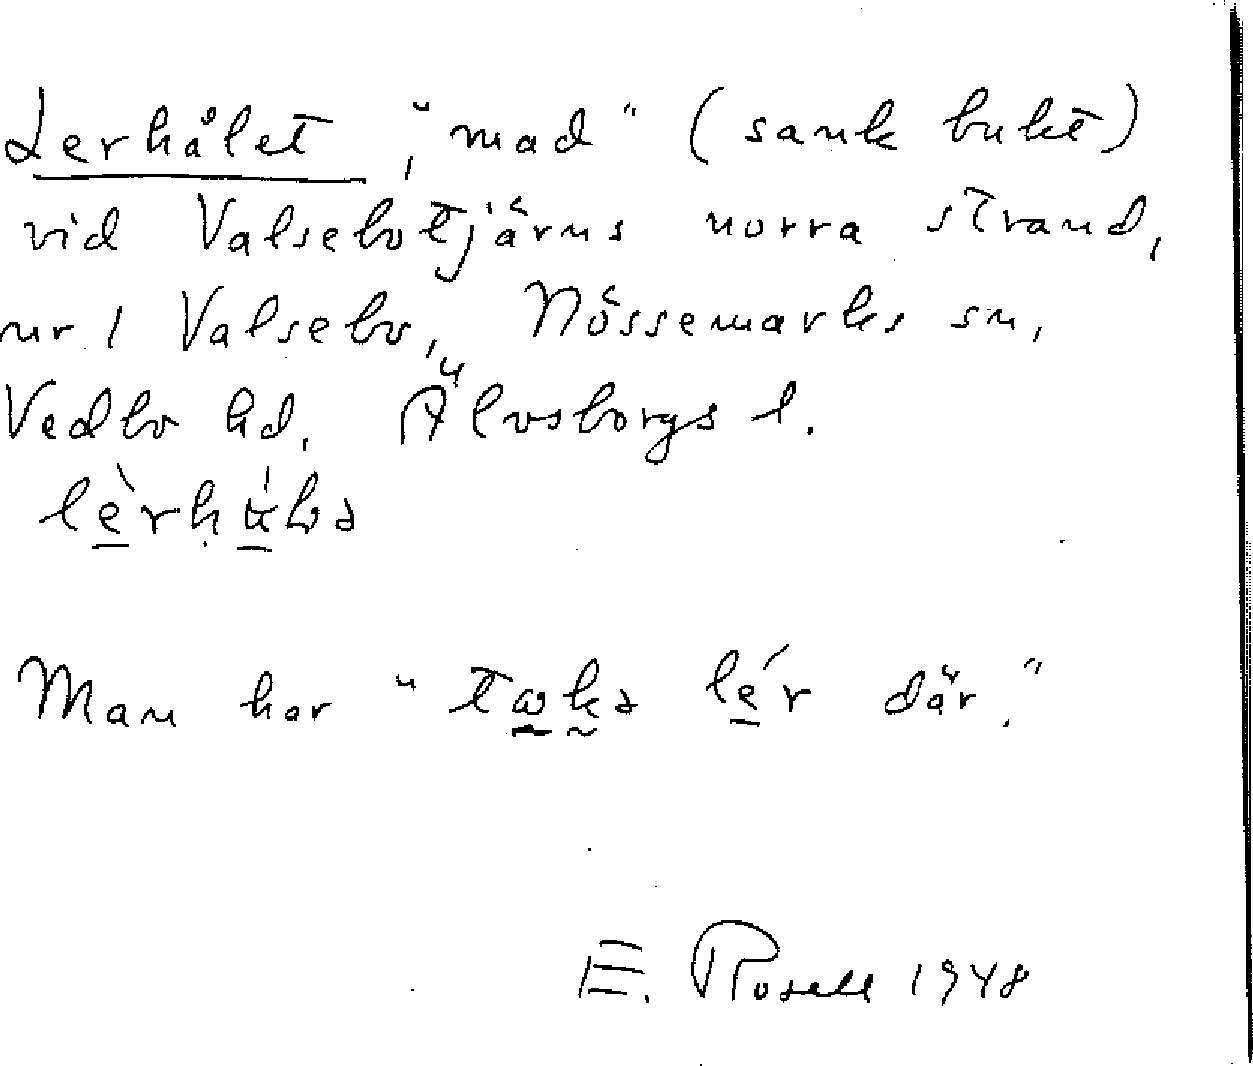 Lerhålet, "mad" (sank bukt)
vid Valsebotjärns norra strand,
nr 1 Valsebo, Nössemarks sn,
Vedbo hd, Älvsborgs l.
Man har " lér där."
E. Rosell 1948